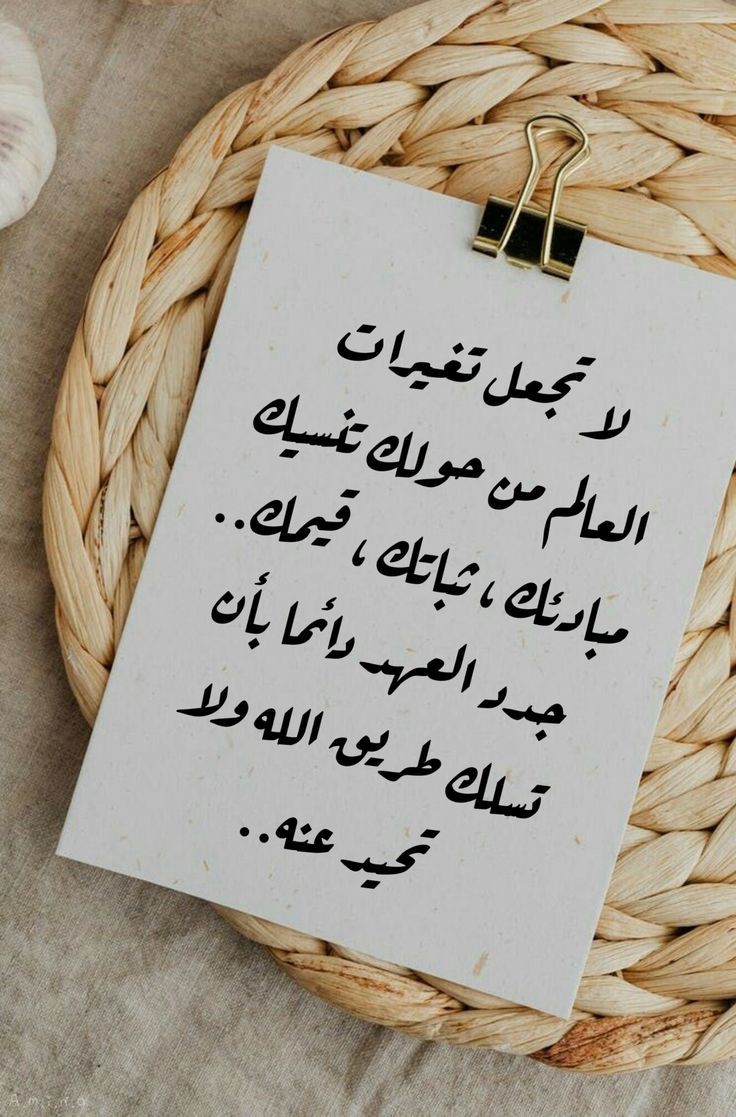 لا تجعل تغيرات
العالم من حولك تنسيك
مبادئك ، ثباتك ، قيمك..
جدد العهد دائما بأن
تسلك طريق الله ولا
تحيد عنه..
Amina